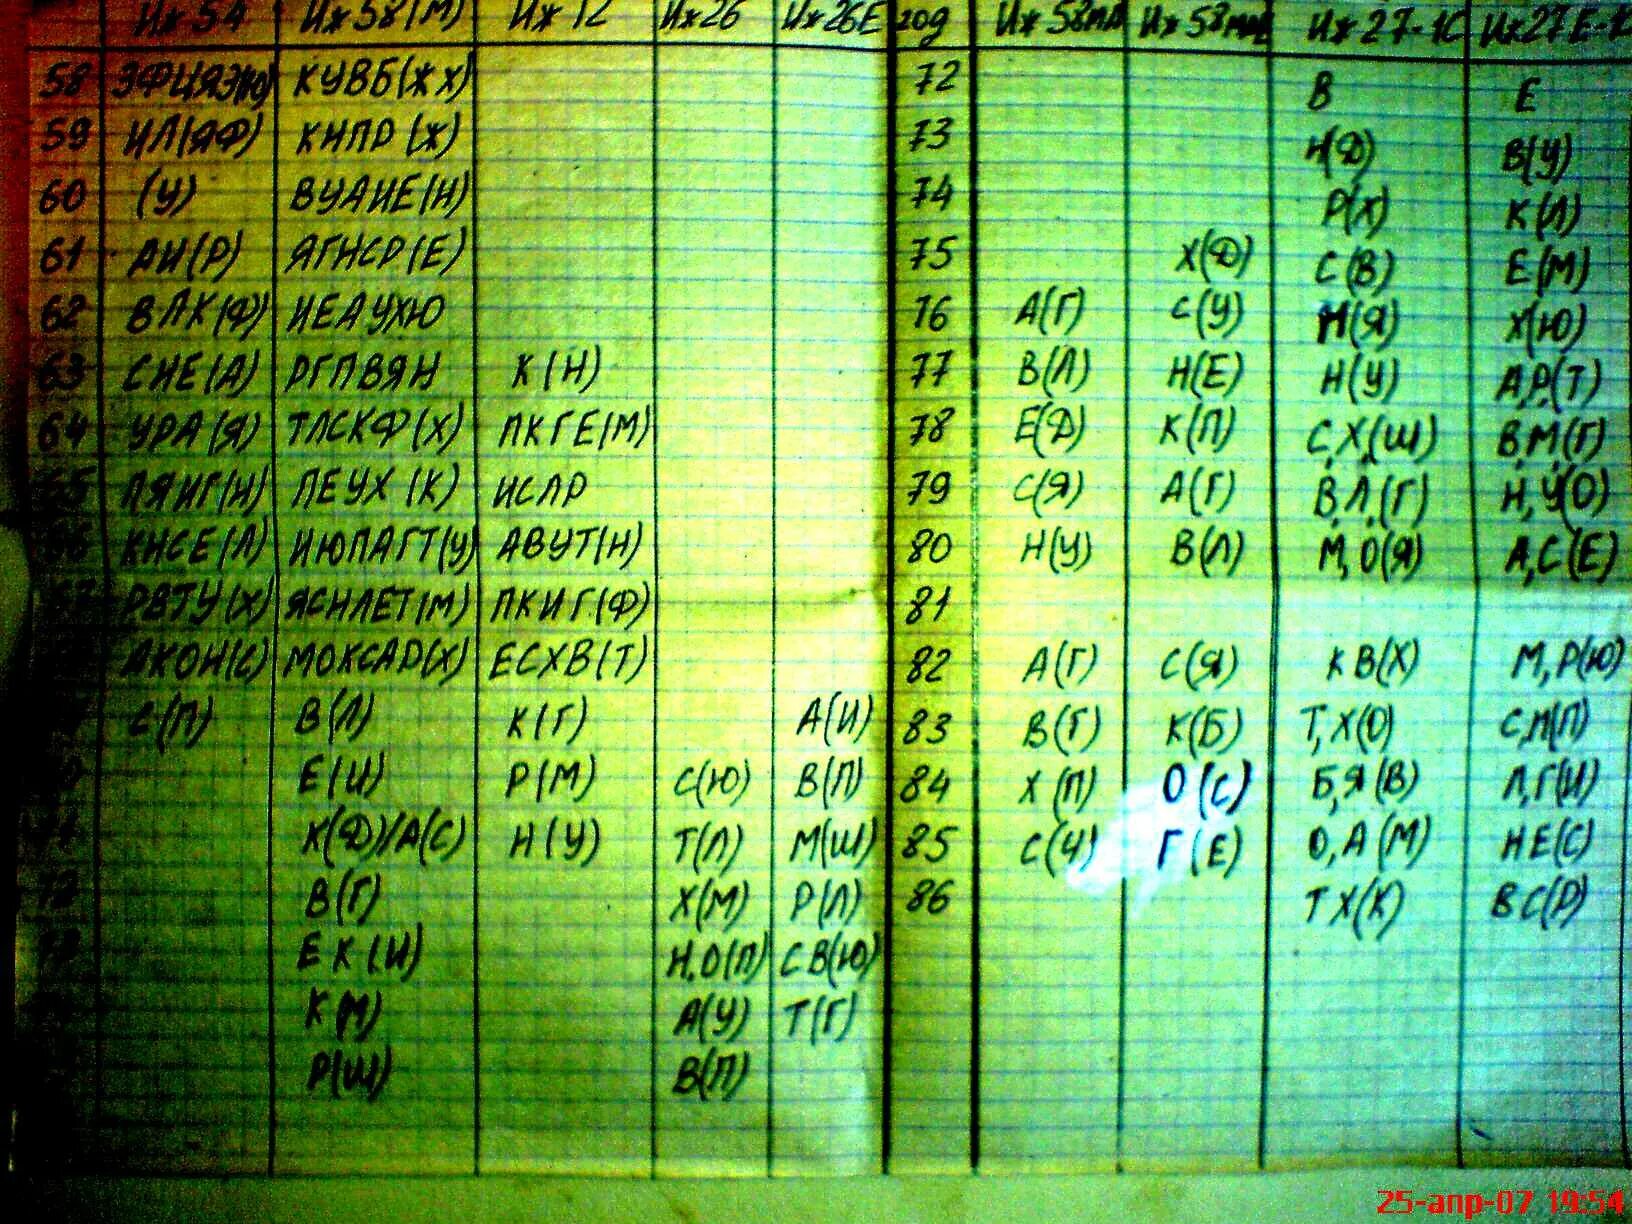 Иж 54 Иж 58(М) Иж 12 Иж 26 Иж 26Е год Иж 58МА Иж 27-1С
58 КУВБ(ЖХ) 72 В Е
59 ИЛ(ЯФ) КНПР(Ж) 73 Н(Д) В(У)
60 (У) ВУАИЕ(Н) 74 Р(Х) К(Л)
61 АИ(Р) ЯГНСР(Е) 75 Х(Д) С(В) Е(М)
62 ВЛК(Ф) ИЕАУХЮ 76 А(Г) С(У) М(Я) Х(Ю)
63 СНЕ(А) РГПВЯН К(Н) 77 В(Л) Н(Е) Н(У) А,Р,(Т)
64 УРА(Я) ТЛСКФ(Х) ПКГЕ(М) 78 Е(Д) К(П) С,Х,(Ш) В,М,(Г)
65 ПЯИГ(Н) ЛЕУХ(К) ИСЛР 79 С(Я) А(Г) В,Л,(Г) Н,У(О)
66 КНСЕ(Л) ИЮПАГТ(У) АВУТ(Н) 80 Н(У) В(Л) М,О(Я) А,С(Е)
67 РВТУ(Х) ЯСНЛЕТ(М) ПКИГ(Ф) 81
АКОН(С) МОКСАР(Х) ЕСХВ(Т) 82 А(Г) С(Я) КВ(Х) М,Р(Ю)
С(П) В(Л) К(Г) А(И) 83 В(Г) К(Б) Т,Х(О)
Е(И) Р(М) С(Ю) В(П) 84 Х(П) О(С) Б,Я(В) Л,Г(И)
К(Д)/А(С) Н(У) Т(Л) М(Ш) 85 С(Ч) Г(Е) О,А(М) НЕ(С)
В(Г) Х(М) Р(Л) 86 ТХ(К) ВС(Р)
ЕК(И) Н,О(П) СВ(Ю)
К(М) А(У) Т(Г)
Р(Ш) В(П)
25-апр-07 19:54